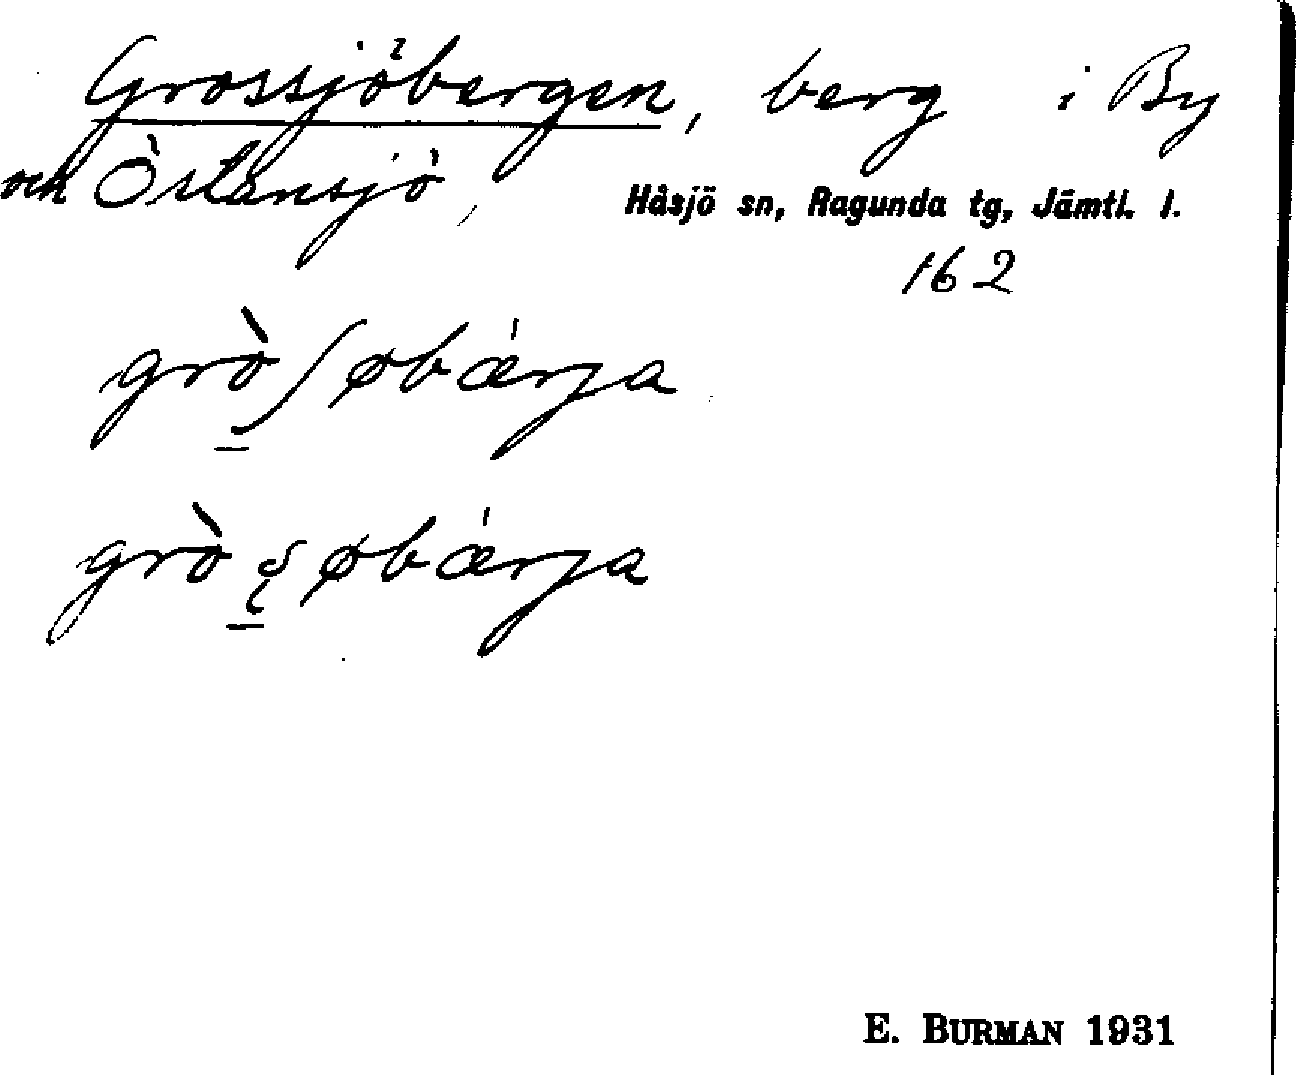 Grossjöbergen, berg i By
och Östansjö, Håsjö sn, Ragunda tg, Jämtl. l.
162
grò̱ʃøbǽrja
gròʂ̱øbǽrja
E. BURMAN 1931